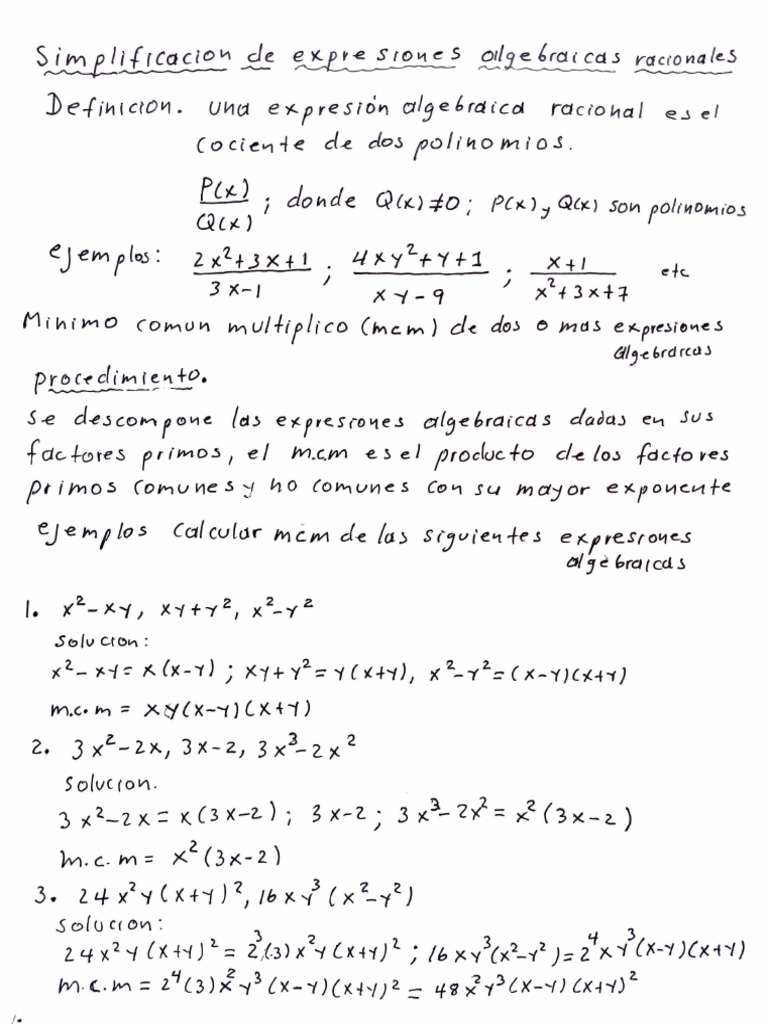 Simplificacion de expresiones algebraicas racionales
Definicion. una expresión algebraica racional es el
cociente de dos polinomios.
P(x)/Q(x) ; donde Q(x)≠0; P(x) y Q(x) son polinomios
ejemplos: (2x²+3x+1)/(3x-1) ; (4xy²+y+1)/(xy-9) ; (x+1)/(x²+3x+7) etc
Minimo comun multiplico (mcm) de dos o mas expresiones
algebraicas
procedimiento.
se descompone las expresiones algebraicas dadas en sus
factores primos, el m.c.m es el producto de los factores
primos comunes y no comunes con su mayor exponente
ejemplos calcular mcm de las siguientes expresiones
algebraicas
1. x²-xy, xy+y², x²-y²
solucion:
x²-xy=x(x-y) ; xy+y²=y(x+y), x²-y²=(x-y)(x+y)
m.c.m = xy(x-y)(x+y)
2. 3x²-2x, 3x-2, 3x³-2x²
solucion.
3x²-2x=x(3x-2); 3x-2; 3x³-2x²=x²(3x-2)
m.c.m = x²(3x-2)
3. 24x²y(x+y)², 16xy³(x²-y²)
solucion:
24x²y(x+y)²=2³(3)x²y(x+y)² ; 16xy³(x²-y²)=2⁴xy³(x-y)(x+y)
m.c.m = 2⁴(3)x²y³(x-y)(x+y)² = 48x²y³(x-y)(x+y)²